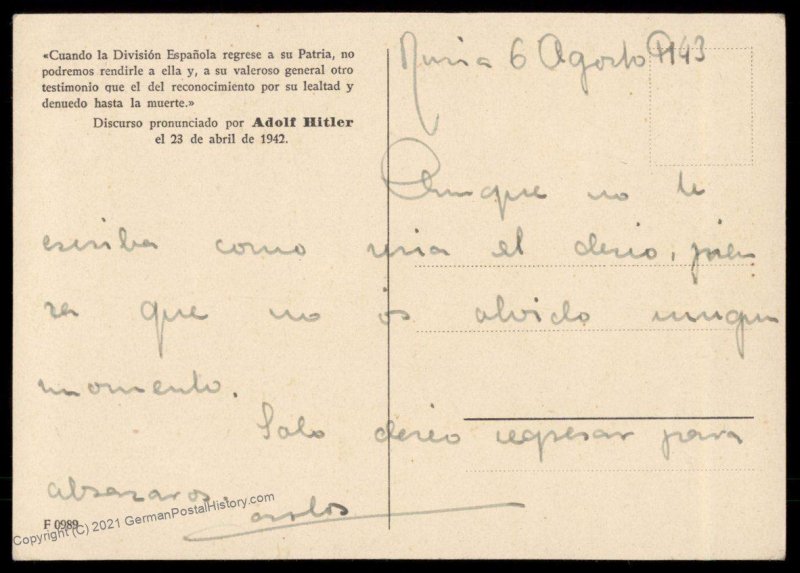 «Cuando la División Española regrese a su Patria, no
podremos rendirle a ella y, a su valeroso general otro
testimonio que el del reconocimiento por su lealtad y
denuedo hasta la muerte.»
Discurso pronunciado por Adolf Hitler
el 23 de abril de 1942.
Rusia 6 Agosto 1943
Aunque no te
escriba como seria el deseo, pien
sa que no os olvido ningun
momento.
Solo deseo regresar para
abrazaros.
Carlos
F 0989
Copyright (C) 2021 GermanPostalHistory.com